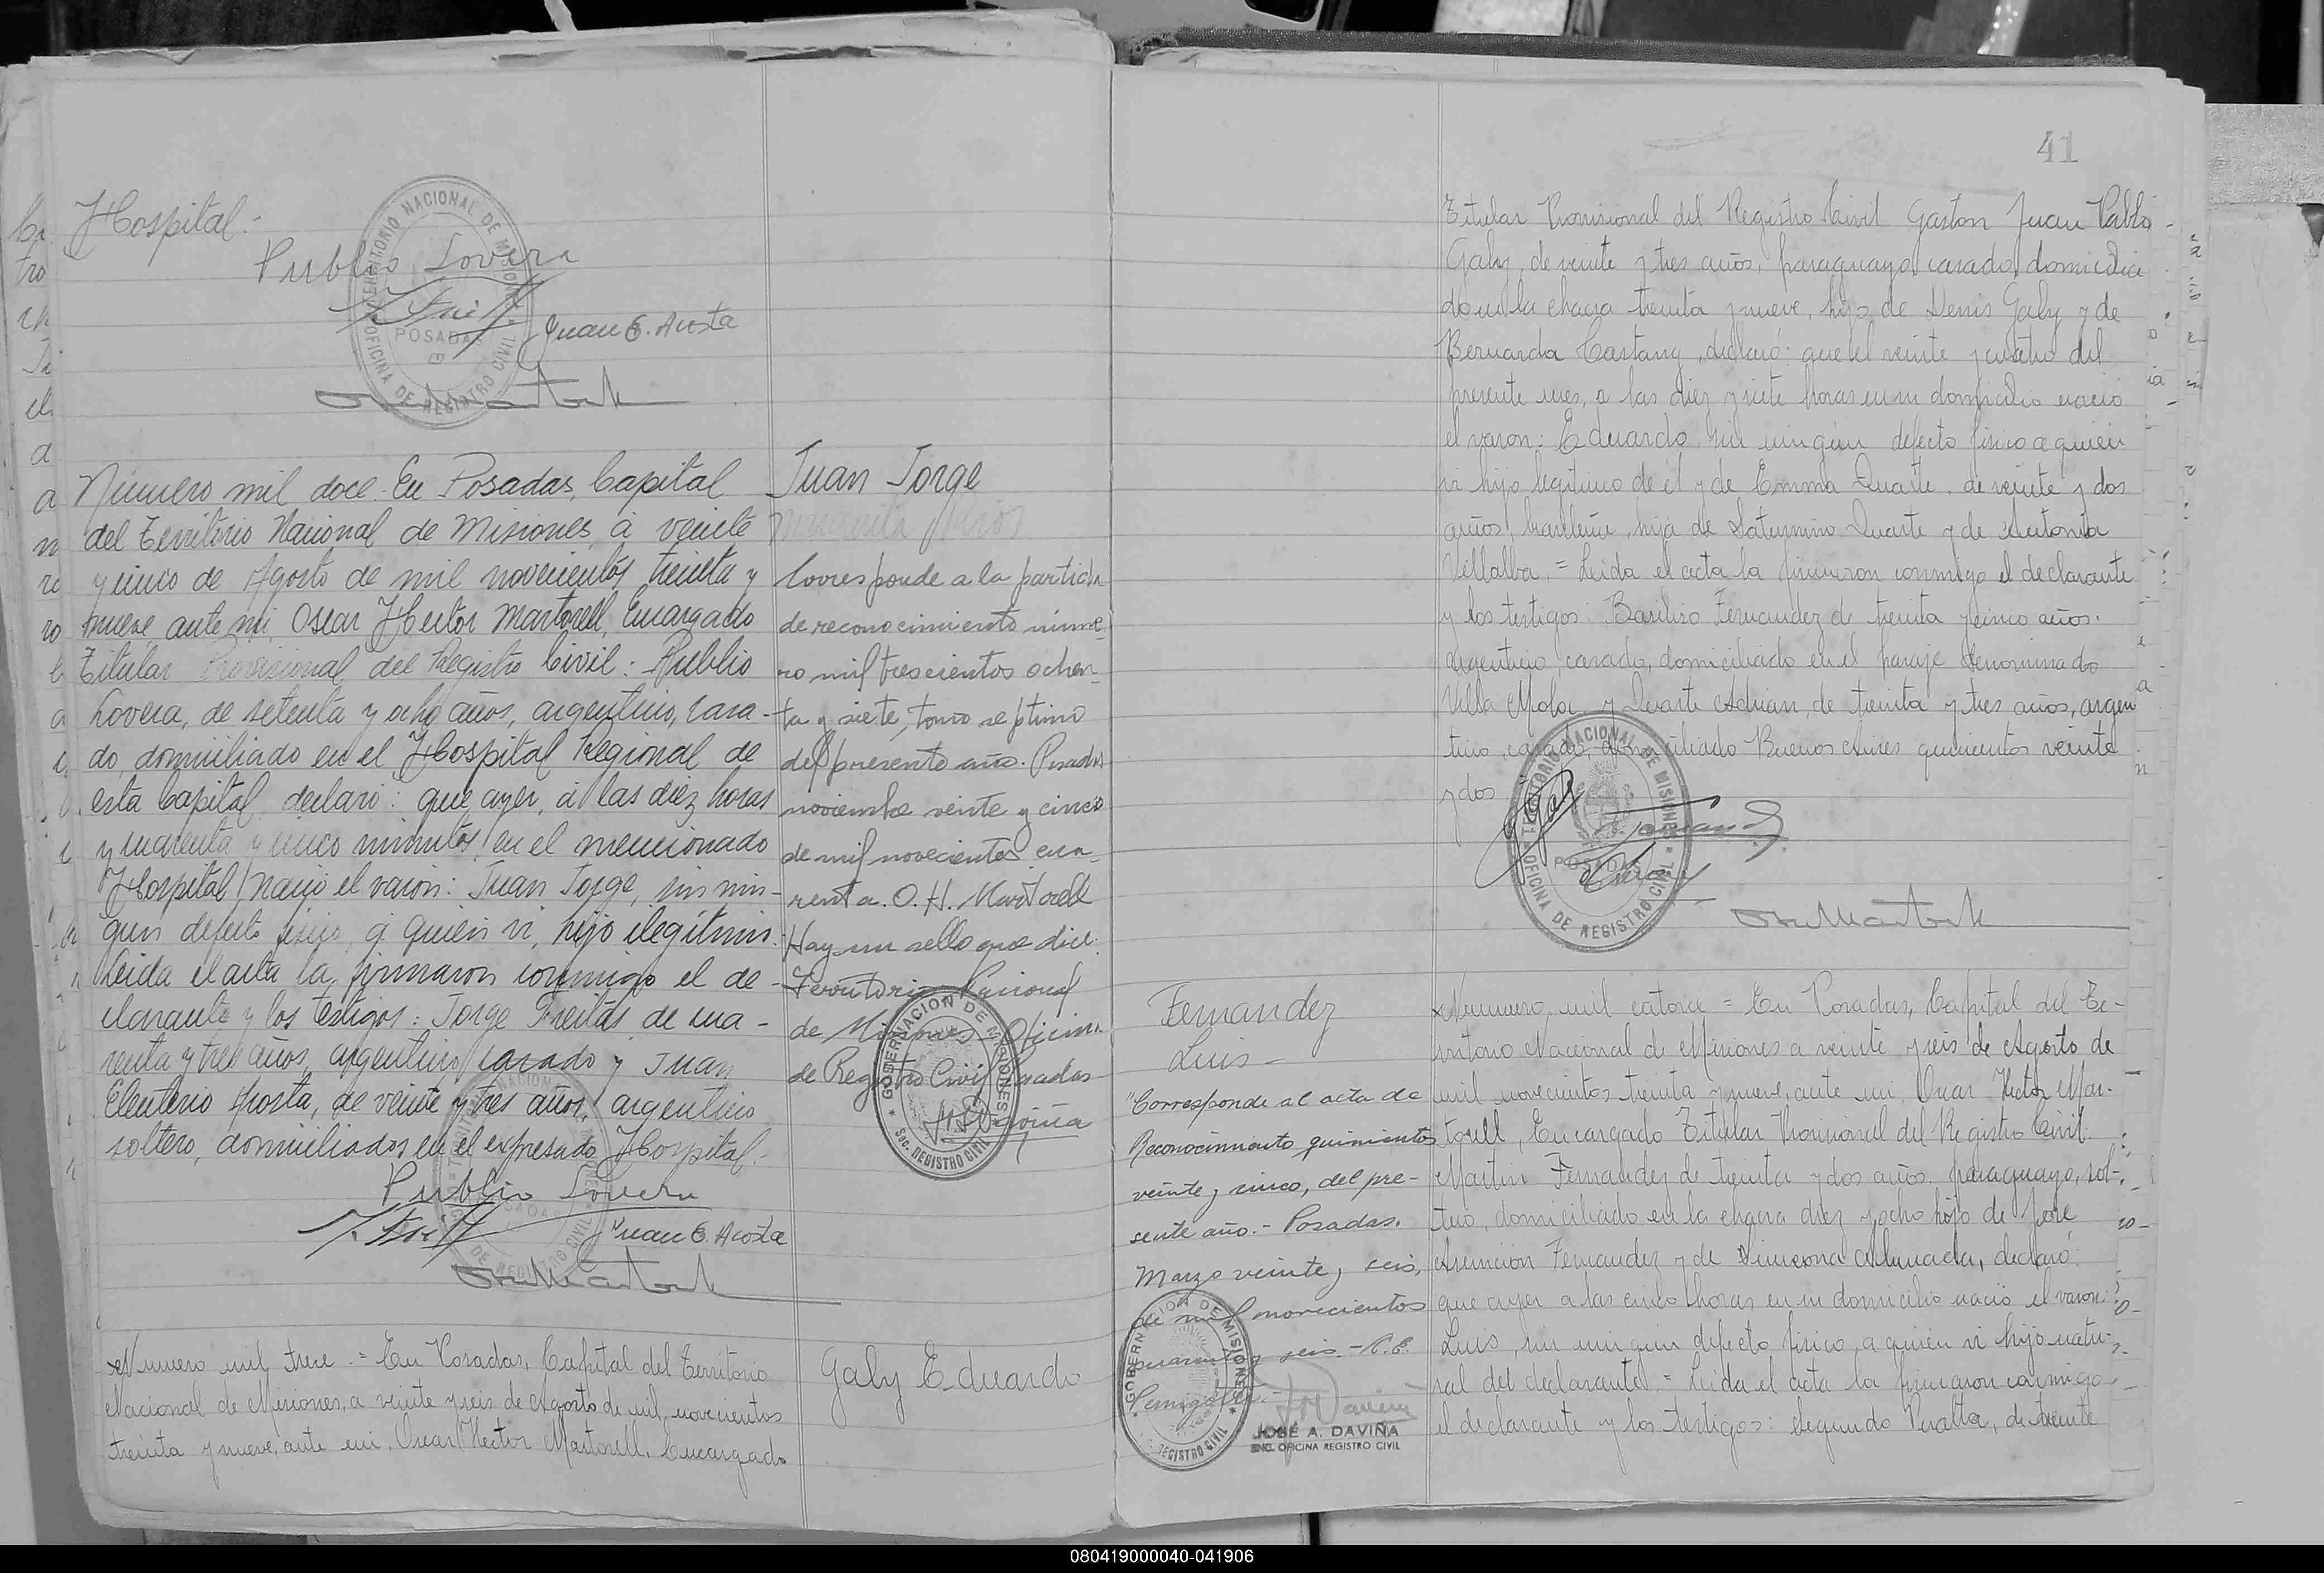 Hospital.-
Publio Lovera
Juan E. Acosta
TERRITORIO NACIONAL DE MISIONES
POSADAS
OFICINA DE REGISTRO CIVIL
Número mil doce. En Posadas, Capital
del Territorio Nacional de Misiones, á veinte
y cinco de Agosto de mil novecientos treinta y
nueve ante mi, Oscar Hector Martorell, Encargado
Titular Provisional del Registro Civil: Publio
Lovera, de setenta y ocho años, argentino, casa-
do, domiciliado en el Hospital Regional de
esta Capital, declaró: que ayer, á las diez horas
y cuarenta y cinco minutos, en el mencionado
Hospital, nació el varón: Juan Jorge, sin nin-
gun defecto físico, á quien vi, hijo ilegítimo.-
Leida el acta la firmaron conmigo el de-
clarante y los testigos: Jorge Freitas de cua-
renta y tres años, argentino, casado y Juan
Eleuterio Acosta, de veinte y tres años, argentino
soltero, domiciliados en el expresado Hospital.-
Publio Lovera
Juan E. Acosta
Juan Jorge
Margarita
Corresponde a la partida
de reconocimiento núme-
ro mil trescientos ochen-
ta y siete, tomo septimo
del presente año. Posadas
noviembre veinte y cinco
de mil novecientos cua-
renta. O. H. Martorell
Hay un sello que dice:
Territorio Nacional
de Misiones - Oficina
de Registro Civil Posadas
GOBERNACION DE MISIONES
Sec. REGISTRO CIVIL
Numero mil trece .= En Posadas, Capital del Territorio
Nacional de Misiones, a veinte y seis de Agosto de mil novecientos
treinta y nueve, ante mi, Oscar Hector Martorell, Encargado
Galy Eduardo
41
Titular Provisional del Registro Civil Gaston Juan Pablo
Galy, de veinte y tres años, paraguayo casado, domicilia
do en la chacra treinta y nueve, hijo de Denis Galy y de
Bernarda Castany, declaró: que el veinte y cuatro del
presente mes, a las diez y siete horas en su domicilio nació
el varon: Eduardo, sin ningun defecto fisico a quien
vi hijo legitimo de el y de Emma Duarte, de veinte y dos
años, brasileña, hija de Saturnino Duarte y de Antonia
Villalba, = Leida el acta la firmaron conmigo el declarante
y los testigos: Basilio Fernandez de treinta y cinco años.
argentino, casado, domiciliado en el paraje denominado
Villa Mola, y Duarte Adrian, de treinta y tres años, argen
tino, casado, domiciliado Buenos Aires quinientos veinte
y dos
TERRITORIO NACIONAL DE MISIONES
POSADAS
OFICINA DE REGISTRO CIVIL
Fernandez
Luis -
"Corresponde al acta de
Reconocimiento quinientos
veinte y cinco, del pre-
sente año.- Posadas,
Marzo veinte y seis,
de mil novecientos
cuarenta y seis.-
GOBERNACION DE MISIONES
REGISTRO CIVIL
JOSÉ A. DAVIÑA
ENC. OFICINA REGISTRO CIVIL
Numero mil catorce = En Posadas, Capital del Te-
rritorio Nacional de Misiones a veinte y seis de Agosto de
mil novecientos treinta y nueve, ante mi, Oscar Hector Mar-
torell, Encargado Titular Provisional del Registro Civil:
Martin Fernandez de treinta y dos años, paraguayo, sol-
tero, domiciliado en la chacra diez y ocho hijo de Jose
Asuncion Fernandez y de Simeona Almada, declaró:
que ayer a las cinco horas en su domicilio nació el varon:
Luis, sin ningun defecto fisico, a quien vi hijo natu-
ral del declarante .= Leida el acta la firmaron conmigo
el declarante y los testigos: Segundo Peralta, de treinta
080419000040-041906